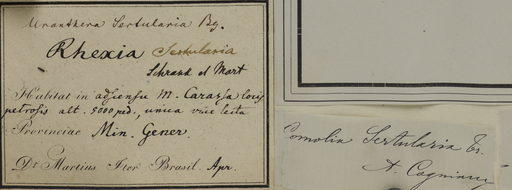 Uranthera Sertularia
Rhexia Sertularia
Schrank et Mart
Habitat in adscensu M. Carassa locis
petrosis alt. 5000 ped., unica vice lecta
Provinciae Min. Gener.
Dr Martius Iter Brasil. Apr.
Comolia Sertularia Tr.
A. Cogniaux